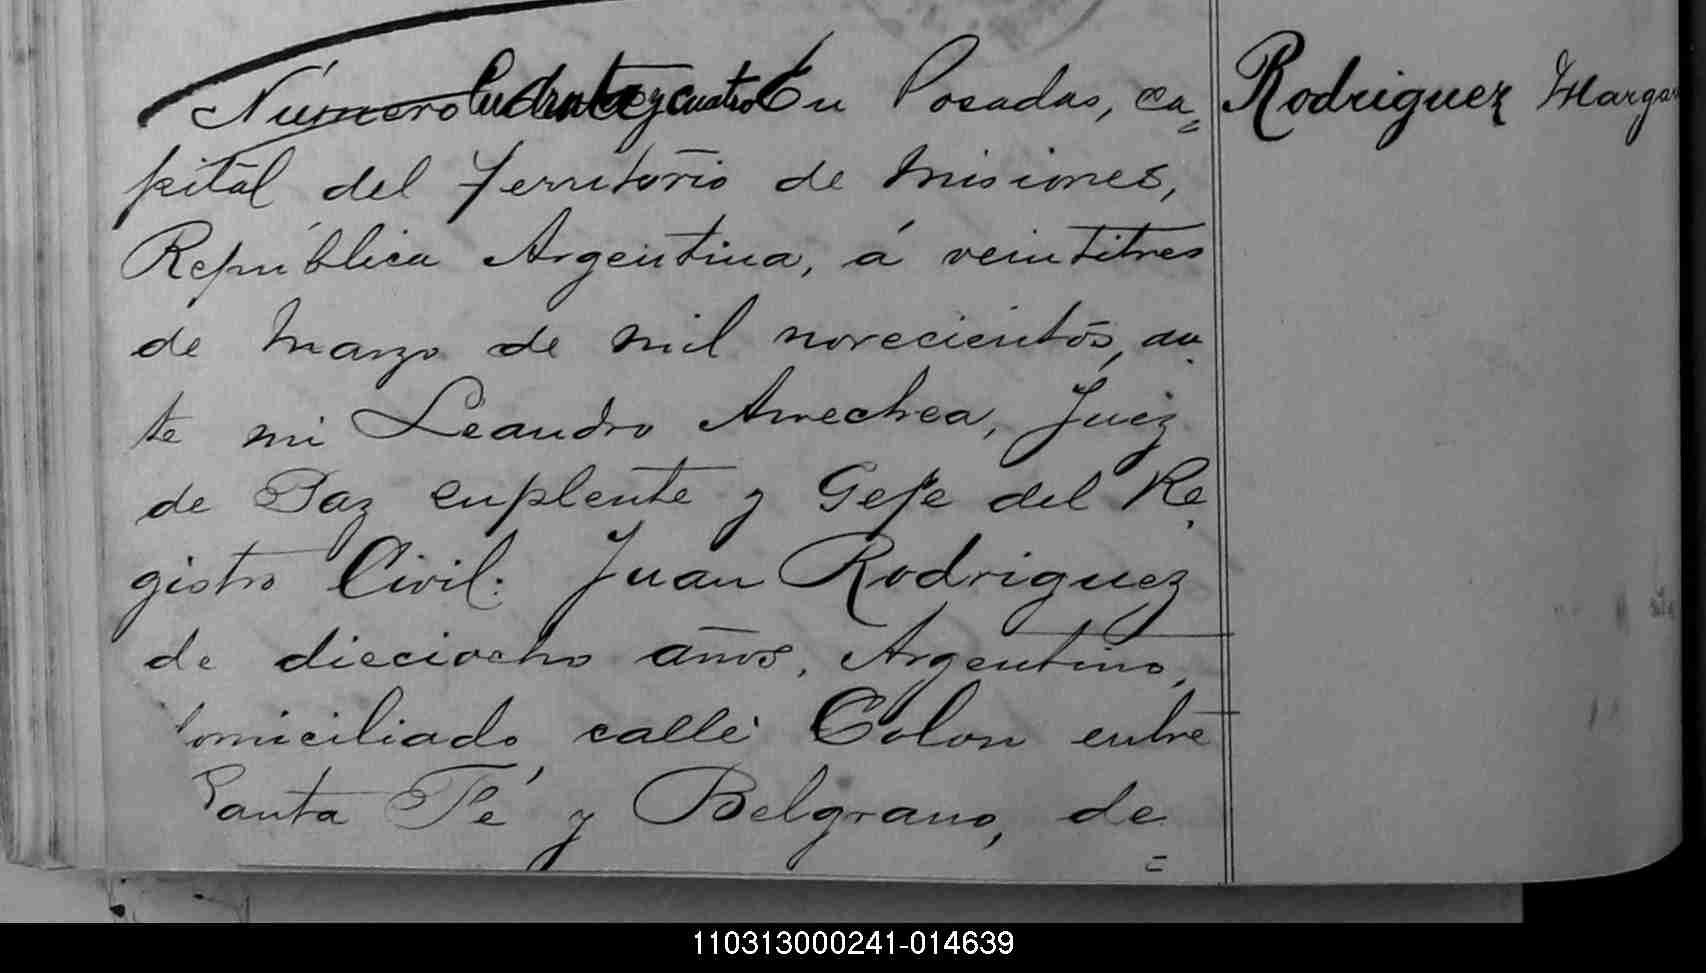 Número Cuarenta y cuatro En Posadas, ca= Rodriguez Marga
pital del Territorio de Misiones,
República Argentina, á veintitres
de Marzo de mil novecientos, an
te mi Leandro Arrechea, Juez
de Paz suplente y Gefe del Re
gistro Civil: Juan Rodriguez
de dieciocho años, Argentino,
domiciliado, calle Colon entre
Santa Fé y Belgrano, de=
110313000241-014639